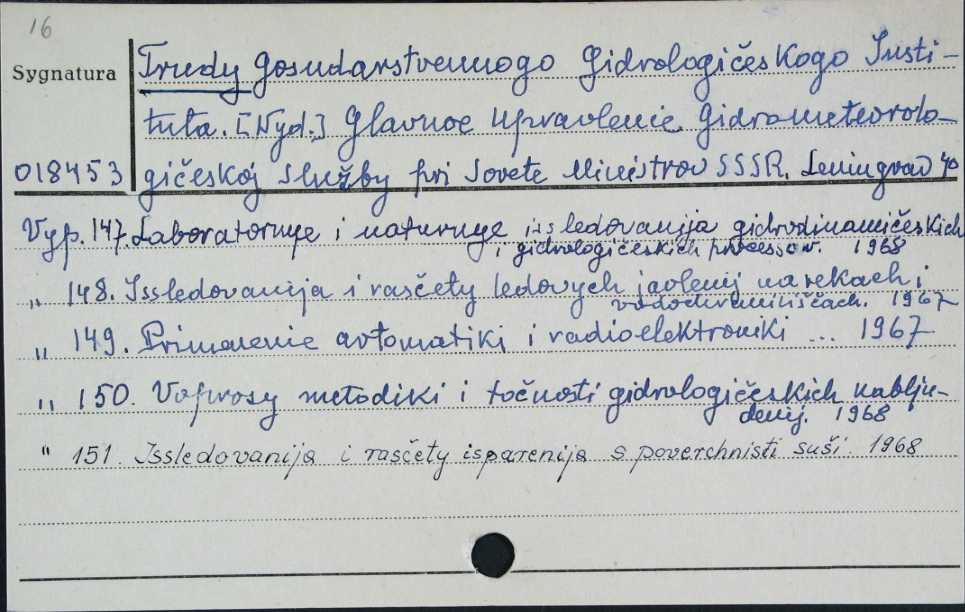 16
Sygnatura
Trudy Gosudarstvennogo Gidrologičeskogo Insti-
tuta. [Wyd.] Glavnoe Upravlenie Gidrometeorolo-
018453 gičeskoj služby pri Sovete Ministrov SSSR. Leningrad
Vyp. 147. Laboratornye i naturnye issledovanija gidrodinamičeskich
i gidrologičeskich processov. 1968
„ 148. Issledovanija i rasčety ledovych javlenij na rekach i
vodochraniliščach. 1967
„ 149. Primenenie avtomatiki i radioelektroniki ... 1967
„ 150. Voprosy metodiki i točnosti gidrologičeskich nablju-
denij. 1968
" 151. Issledovanija i rasčety isparenija s poverchnisti suši. 1968